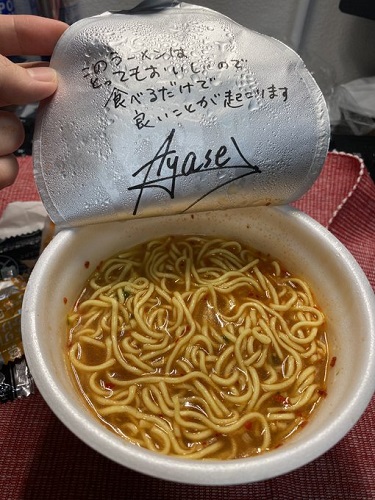 このラーメンは
とってもおいしいので
食べるだけで
良いことが起こります
Ayase